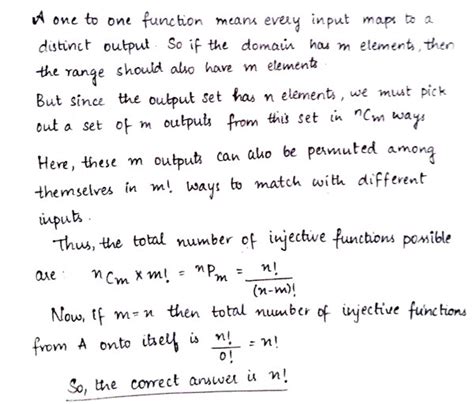 A one to one function means every input maps to a
distinct output. So if the domain has m elements, then
the range should also have m elements.
But since the output set has n elements, we must pick
out a set of m outputs from this set in ⁿCm ways
Here, these m outputs can also be permuted among
themselves in m! ways to match with different
inputs.
Thus, the total number of injective functions possible
are : nCm × m! = ⁿPm = n!/(n-m)!
Now, if m=n then total number of injective functions
from A onto itself is n!/0! = n!
So, the correct answer is n!